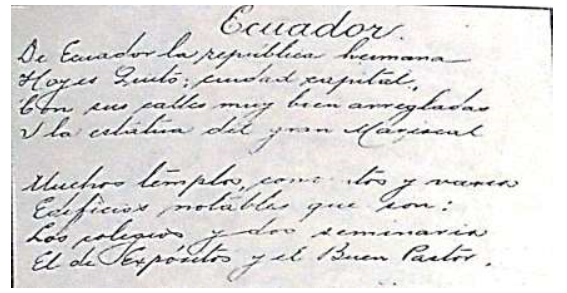 Ecuador.
De Ecuador la república hermana
Hoy es Quito; ciudad capital,
Con sus calles muy bien arregladas
Y la estatua del gran Mariscal
Muchos templos, y varios
Edificios notables que son:
Los colegios y dos seminarios
El de Expósitos y el Buen Pastor.